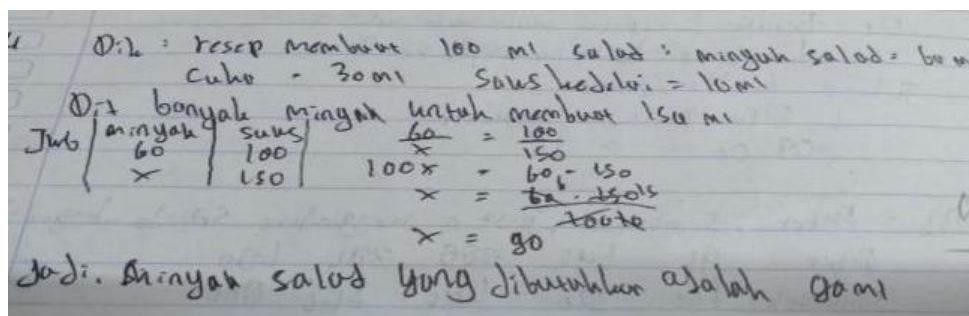 Dik : resep membuat 100 ml salad : minyak salad = 60 m
Cuka = 30ml Saus kedelai = 10ml
Dit banyak minyak untuk membuat 150 ml
Jwb | minyak | saus | 60/x = 100/150
60 | 100 | 100x = 60 . 150
x | 150 | x = 60 6 . 150 15 / 100 10
x = 90
Jadi. Minyak salad yang dibutuhkan adalah 90ml